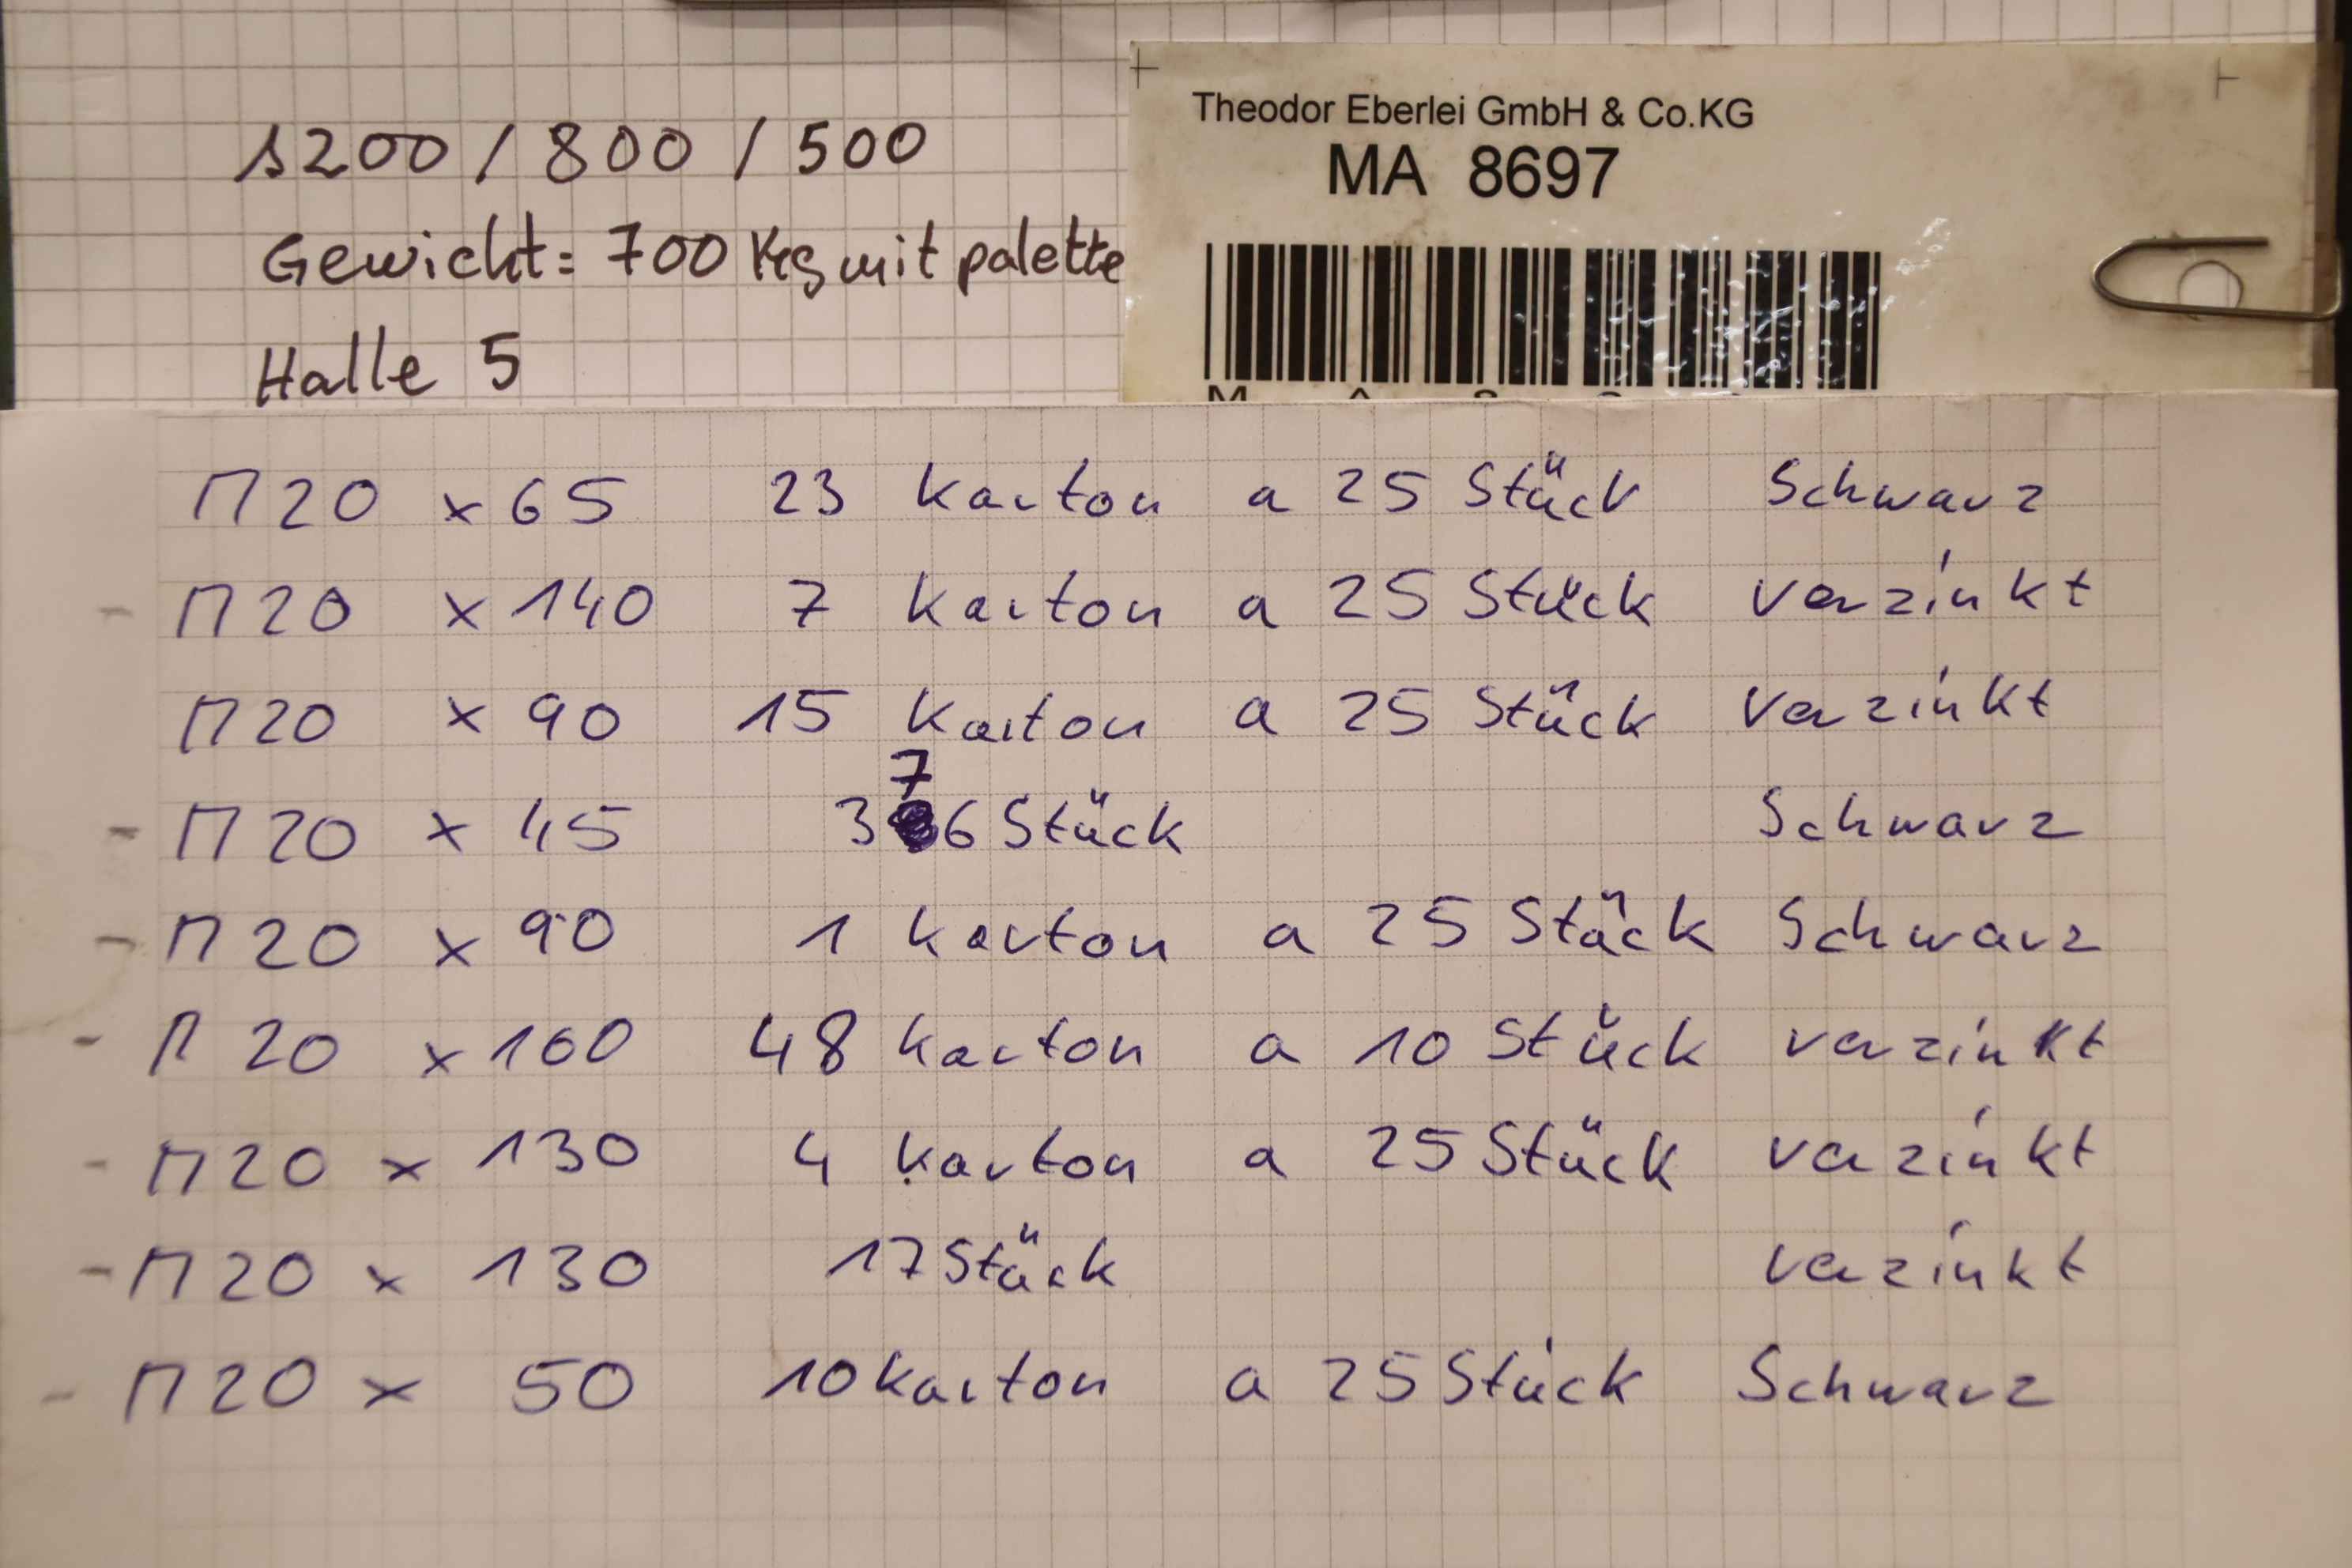 1200 / 800 / 500
Gewicht: 700 Kg mit palette
Halle 5
Theodor Eberlei GmbH & Co.KG
MA 8697
M20 x 65 23 Karton a 25 Stück Schwarz
- M20 x 140 7 Karton a 25 Stück verzinkt
M20 x 90 15 Karton a 25 Stück verzinkt
- M20 x 45 376 Stück Schwarz
- M20 x 90 1 Karton a 25 Stück Schwarz
- M20 x 160 48 Karton a 10 Stück verzinkt
- M20 x 130 4 Karton a 25 Stück verzinkt
- M20 x 130 17 Stück verzinkt
- M20 x 50 10 Karton a 25 Stück Schwarz